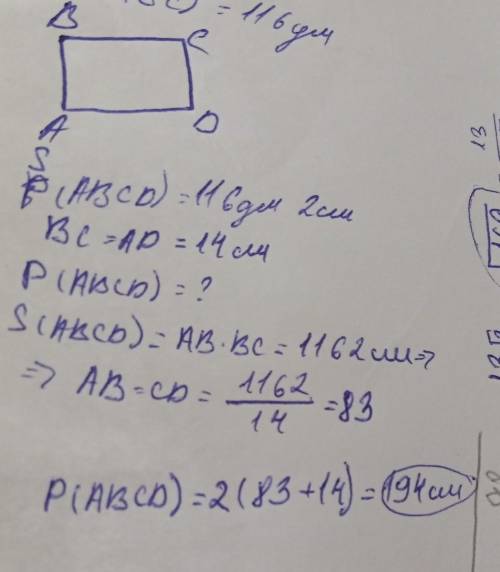 = 116 дм
B
C
A
D
S
P(ABCD) = 116 дм 2 см
BC = AD = 14 см
P(ABCD) = ?
S(ABCD) = AB · BC = 1162 см =>
=> AB = CD = 1162/14 = 83
P(ABCD) = 2(83 + 14) = 194 см
13